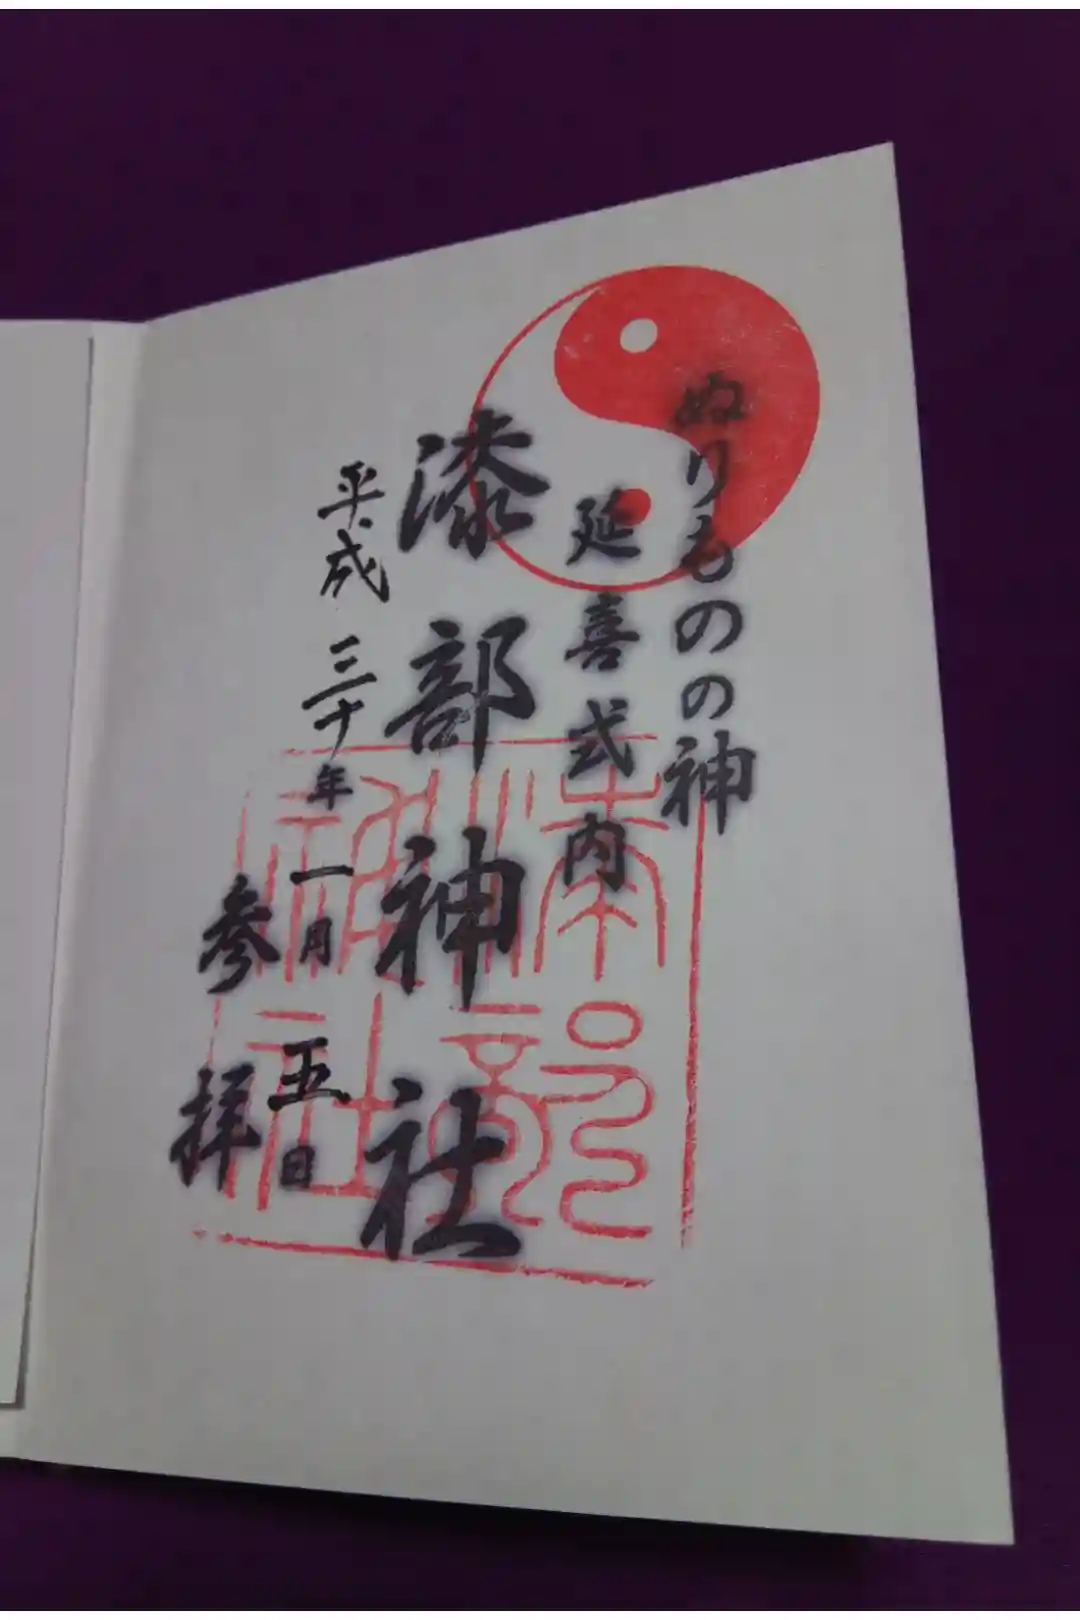 ぬりものの神
延喜式内
漆部神社
平成三十年一月五日
参拝